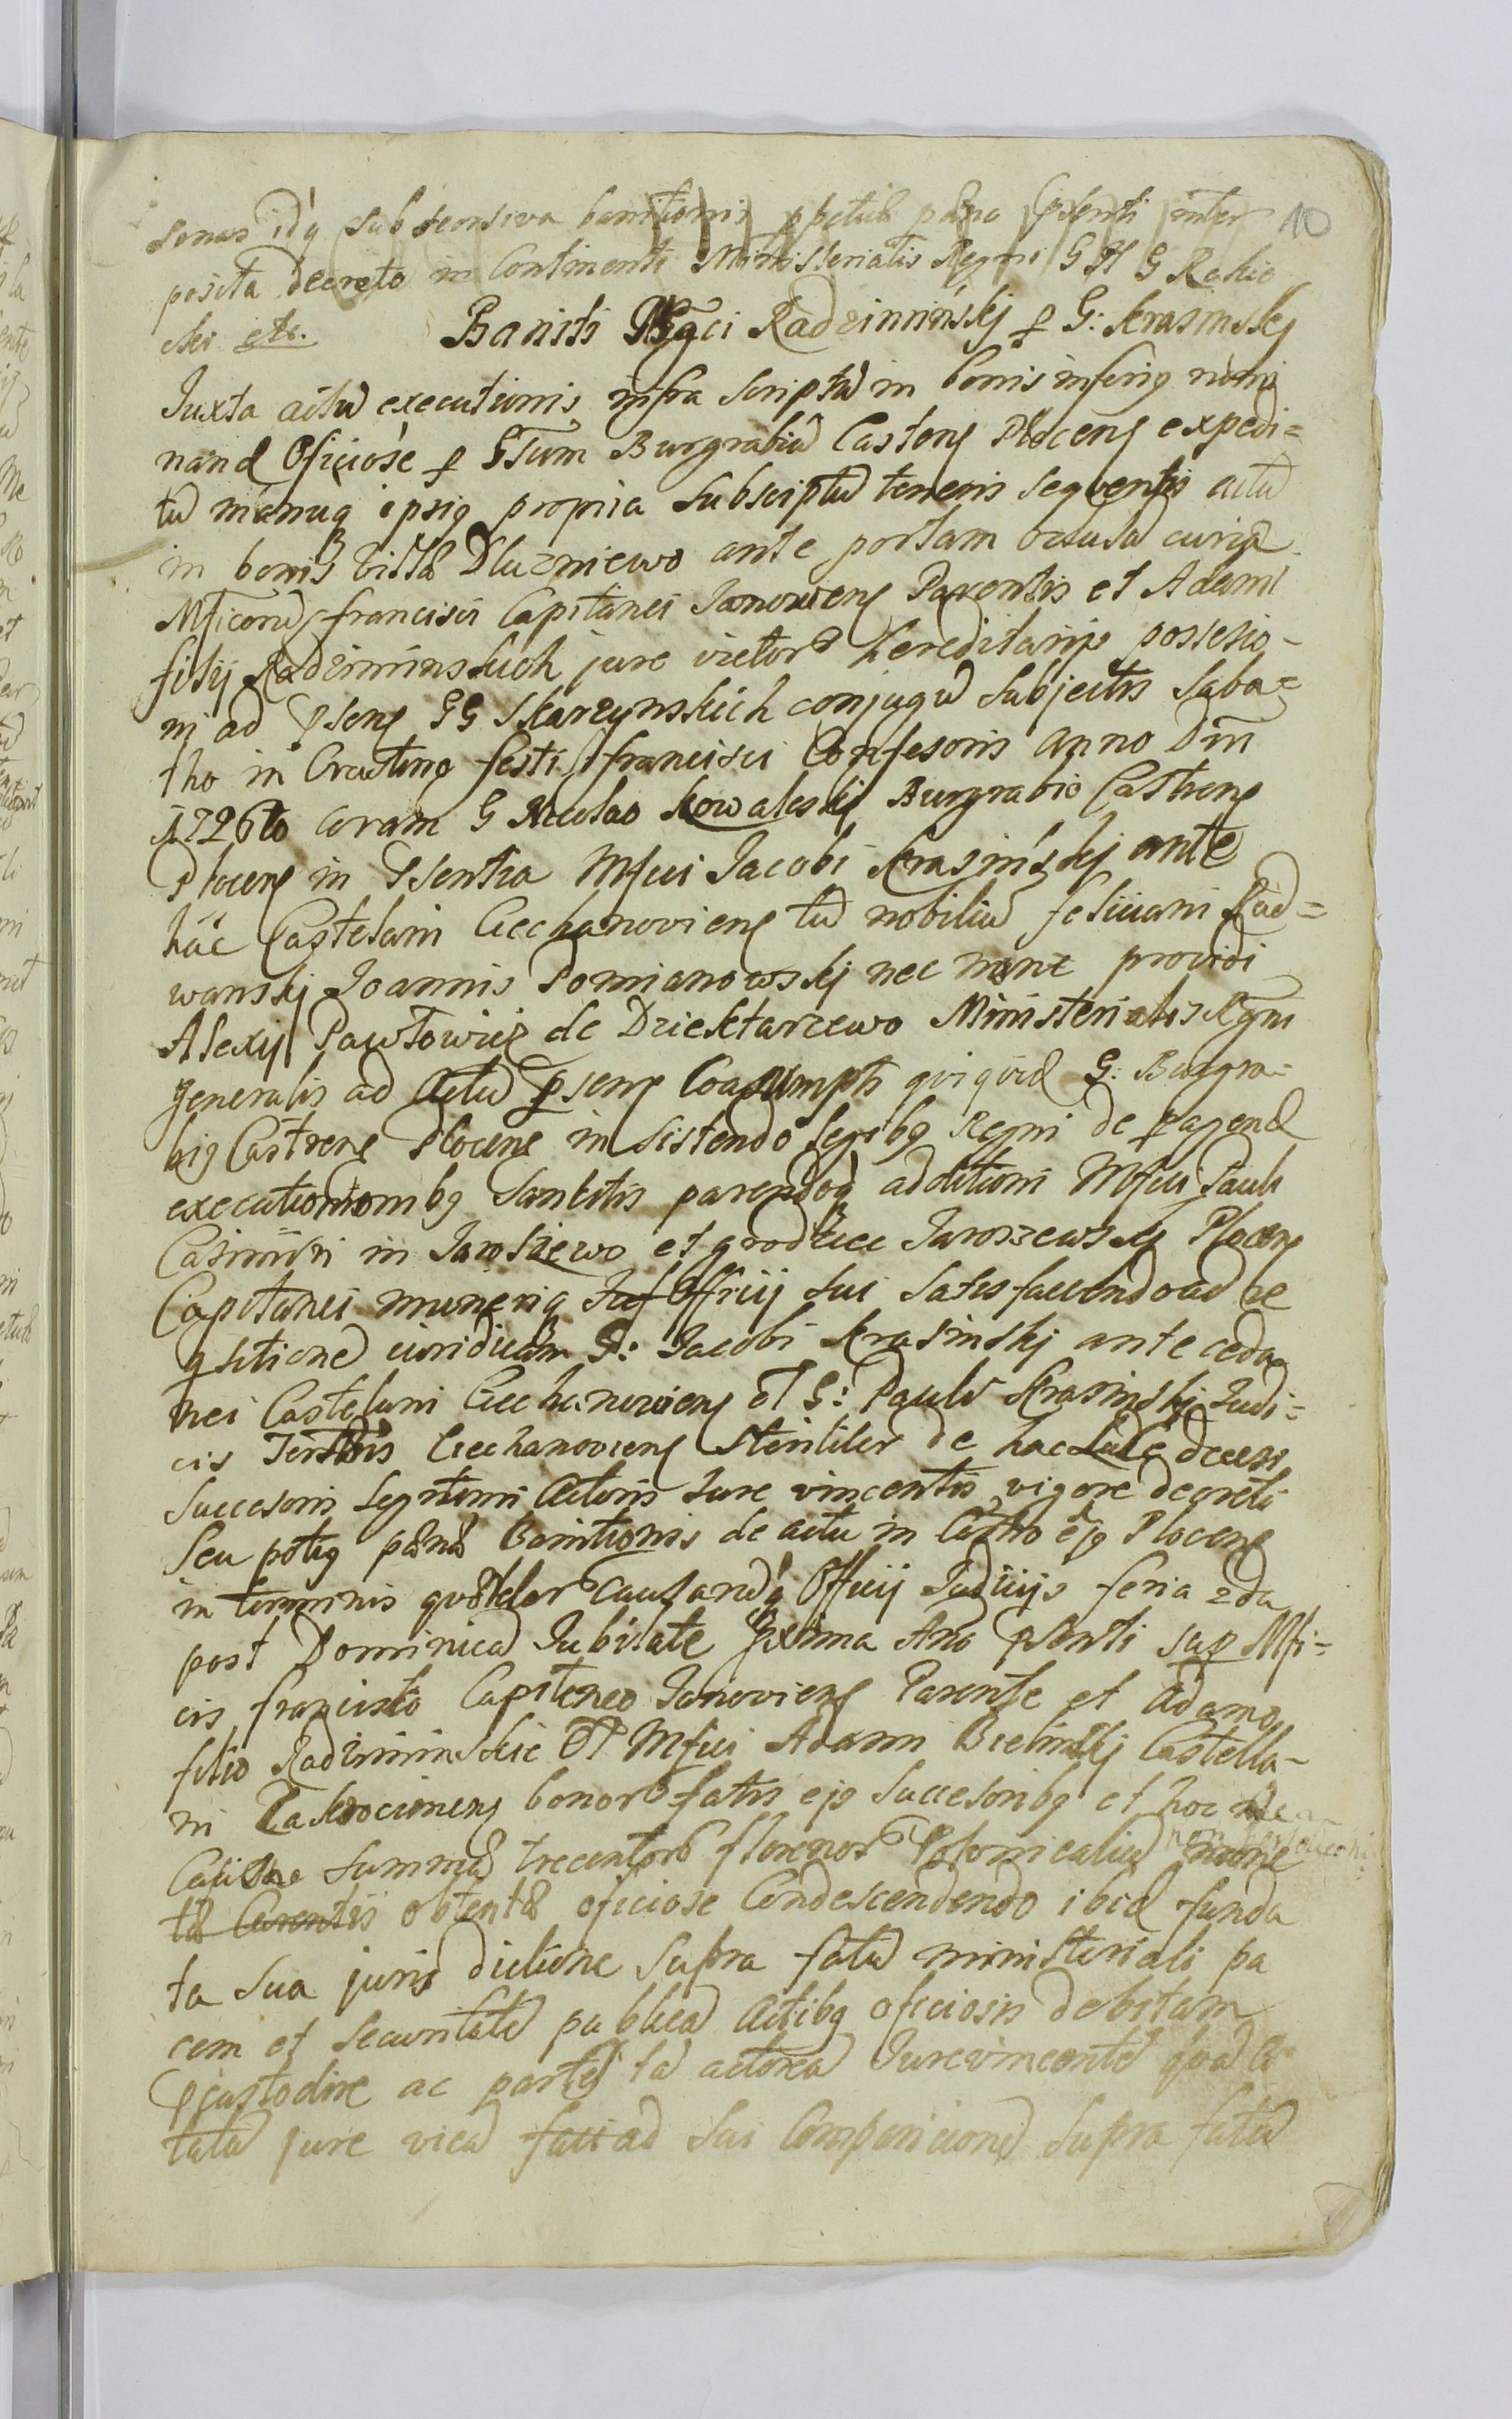 sonas idq sub sconsiva banitionis ppetuæ pæna psenti inter 10
posita decreto in Continenti Ministerialis Regni G H G Rakie
cki etc. Baniti Radziminskij p G: Krasinskij
Juxta actu executionis infra scriptu in bonis inferiq nomi
nand Oficiose p Burgrabiu Castens Plocens expedi=
tu manuq ipsiq propria subscriptu tenoris sequentis actu
in bonis villæ Dluzniewo ante portam oclusa curiæ
Mficoru francisci Capitanei Janoviens Parentis et Adami
filij Radziminskich jure victor hereditarijs possesio-
ni ad psens GG Skarzynskich conjugu subjectis Saba=
tho in Crastino festi S francisci Confesoris anno Dni
1726to coram G Nicolao Kowaleskij Burgrabio Castrens
Plocens in psentia Mfici Jacobi Krasinskij ante
hac Castelani Ciechanoviens tu nobiliu feliciani Rad=
wanskij Joannis Domianowskij nec nont providi
Alexij Pawlowicz de Dziektarzewo Ministerialis Rgni
Generalis ad Actu psens Coasumpti quiquid G: Burgra=
biq Castrens Plocens in sistendo legibq Regni de pagend
executionionibq sancitis parendoq aditioni Mfici Pauli
Casimiri in Jaroszewo et grodziec Jaroszewskij Plocens
Capitanei muneriq Officij sui satisfaciendo ad re
qsitione iuridicam G: Jacobi Krasinskij ante ceda
nei Castelani Ciechanoviens et G: Pauli Krasinskij Judi=
cis Terstris Ciechanoviens steriliter de hac Luce decesi
Succesoris legitimi Actoris Jure vincentis vigore decreti
seu potiq pænæ Banitionis de actu in Castro ejq Plocens
in terminis quærelar Causarudq Officij Judicijs feria 2da
post Dominica Jubilate pxima Ano psenti sup Mfi=
cis francisco Capitaneo Janoviens Parente et Adamo
filio Radziminskie et Mfici Adami Bielinskij Castella-
ni bonor fatis ejq succesoribq et hoc
summa trecentor florenor Polonicaliu
tæ Carentis obtentæ oficiose Condescendendo ibid funda
ta sua juris dictione supra fatu ministeriali pa
cem et securitate publica Actibq oficiosis debitam
pcustodire ac parte ta actorea Jurevincente
tatu jure victa ad sui Comparicione supra fatu